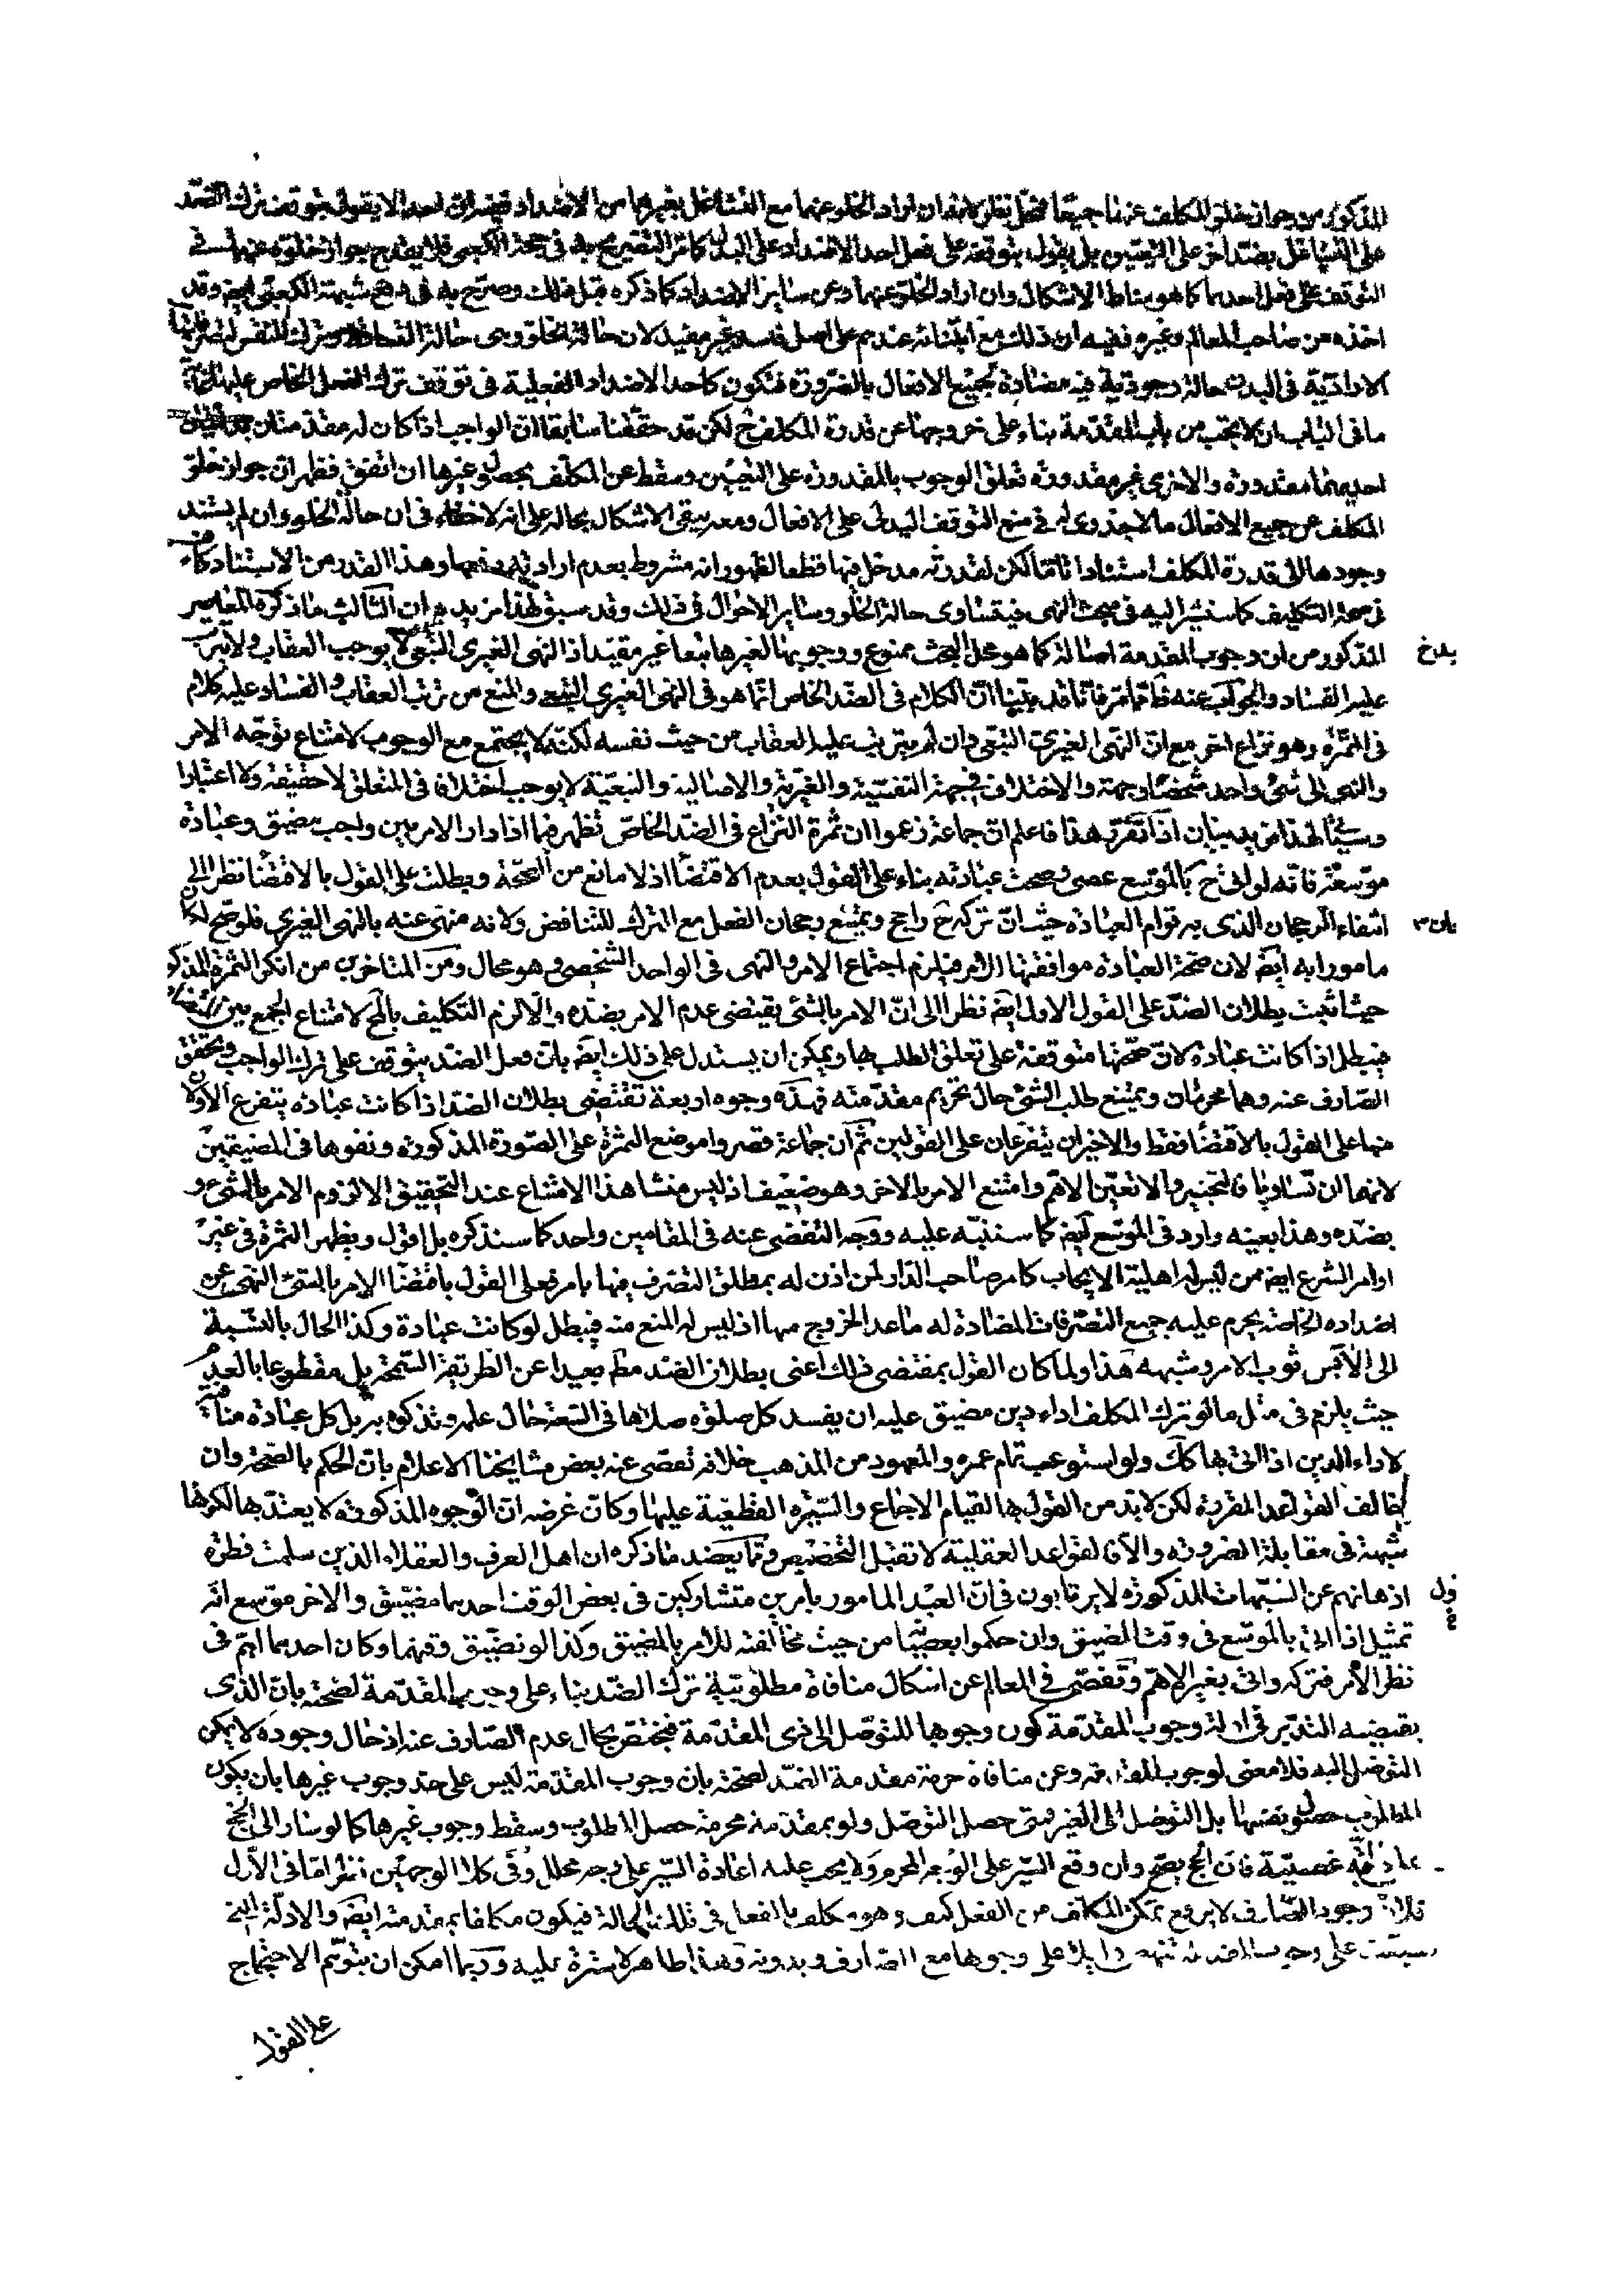 المذكور من جواز خلو المكلف عنهما جميعا فمحل نظر لانه ان اراد الخلو عنهما مع التشاغل بغيرهما من الاضداد ففيه ان احدا لا يقول بتوقف ترك الضد
على التشاغل بضد اخر على التعيين بل يقول بتوقفه على فعل احد الاضداد على البدل كما مر التصريح به في حجة الكعبي فلا يقدح جواز خلوه عنهما في
التوقف على فعل احدهما كما هو مناط الاشكال وان اراد الخلو عنهما وعن ساير الاضداد كما ذكره قبل ذلك وصرح به في دفع شبهة الكعبي ايضا وقد
اخذه من صاحب المعالم وغيره ففيه ان ذلك مع ابتنائه عندهم على اصل فاسد غير مفيد لان حالة الخلو وهي حالة ترك النفس لتصرفاتها
الارادية في البدن حالة وجودية فيه مضادة لجميع الافعال بالضرورة فتكون كاحد الاضداد الفعلية في توقف ترك الفعل الخاص عليها غاية
ما في الباب ان لا يجب من باب المقدمة بناء على خروجها عن قدرة المكلف ح لكن قد حققنا سابقا ان الواجب اذا كان له مقدمتان
احديهما مقدورة والاخرى غير مقدورة تعلق الوجوب بالمقدورة على التعيين وسقط عن المكلف بحصول غيرها ان اتفق فظهر ان جواز خلو
المكلف عن جميع الافعال مما لا جدوى له في منع التوقف البدلي على الافعال ومعه يبقى الاشكال بحاله على انه لا خفاء في ان حالة الخلو وان لم يستند
وجودها الى قدرة المكلف استنادا تاما لكن لقدرته مدخل فيها قطعا لظهور انه مشروط بعدم ارادته رفعها وهذا القدر من الاستناد كاف
في صحة التكليف كما سنشير اليه في مبحث النهي فيتساوى حالة الخلو وساير الاحوال في ذلك وقد سبق لهذا مزيد بيان الثالث ما ذكره المعاصر
المذكور من ان وجوب المقدمة اصالة كما هو محل البحث ممنوع ووجوبها لغيرها تبعا غير مفيد اذ النهي الغيري التبعي لا يوجب العقاب ولا يترتب
عليه الفساد والجواب عنه ظاهر مما مر فانا قد بينا ان الكلام في الضد الخاص انما هو في النهي الغيري التبعي والمنع من ترتب العقاب والفساد عليه كلام
في الثمرة وهو نزاع اخر مع ان النهي الغيري التبعي وان لم يترتب عليه العقاب من حيث نفسه لكنه لا يجتمع مع الوجوب لامتناع توجه الامر
والنهي الى شئ واحد شخصا وجهة والاختلاف في جهة النفسية والغيرية والاصالية والتبعية لا يوجب اختلافا في المتعلق لا حقيقة ولا اعتبارا
وسيجئ لهذا مزيد بيان اذا تقرر هذا فاعلم ان جماعة زعموا ان ثمرة النزاع في الضد الخاص تظهر فيما اذا دار الامر بين واجب مضيق وعبادة
موسعة فانه لو اتى ح بالموسع عصى وصحت عبادته بناء على القول بعدم الاقتضاء اذ لا مانع من الصحة وبطلت على القول بالاقتضاء نظرا الى
انتفاء الرجحان الذي به قوام العبادة حيث ان تركه ح راجح ويمتنع رجحان الفعل مع الترك للتناقض ولانه منهي عنه بالنهي الغيري فلو صح لكان
مامورا به ايضا لان صحة العبادة موافقتها الامر فيلزم اجتماع الامر والنهي في الواحد الشخصي وهو محال ومن المتاخرين من انكر الثمرة المذكورة
حيث اثبت بطلان الضد على القول الاول ايضا نظرا الى ان الامر بالشئ يقتضي عدم الامر بضده والا لزم التكليف بالمح لامتناع الجمع بين الضدين
فيبطل اذا كانت عبادة لان صحتها متوقفة على تعلق الطلب بها ويمكن ان يستدل على ذلك ايضا بان فعل الضد يتوقف على ترك الواجب وتحقق
الصارف عنه وهما محرمان ويمتنع طلب الشئ حال تحريم مقدمته فهذه وجوه اربعة تقتضي بطلان الضد اذا كانت عبادة يتفرع الاولان
منها على القول بالاقتضاء فقط والاخيران يتفرعان على القولين ثم ان جماعة قصروا موضع الثمرة على الصورة المذكورة ونفوها في المضيقين
لانهما ان تساويا فالتخيير والا تعين الاهم وامتنع الامر بالاخر وهو ضعيف اذ ليس منشا هذا الامتناع عند التحقيق الا لزوم الامر بالشئ و
بضده وهذا بعينه وارد في الموسع ايضا كما سننبه عليه ووجه التفصي عنه في المقامين واحد كما سنذكره بل اقول ويظهر الثمرة في غير
اوامر الشرع ايضا ممن ليس له اهلية الايجاب كامر صاحب الدار لمن اذن له بمطلق التصرف فيها بامر فعلى القول باقتضاء الامر بالشئ النهي عن
اضداده الخاصة يحرم عليه جميع التصرفات المضادة له ما عدا الخروج منها اذ ليس له المنع منه فيبطل لو كانت عبادة وكذا الحال بالنسبة
الى الابس ثوب الامر ومشبهه هذا ولما كان القول بمقتضى ذلك اعني بطلان الضد مط بعيدا عن الطريقة السمحة بل مقطوعا بالعدم
حيث يلزم في مثل ما لو ترك المكلف اداء دين مضيق عليه ان يفسد كل صلوة صلاها في السعة حال علمه وتذكره به بل كل عبادة منافية
لاداء الدين اذا اتى بها كك ولو استوعب تمام عمره والمعهود من المذهب خلافه تفصى عنه بعض مشايخنا الاعلام بان الحكم بالصحة وان
خالف القواعد المقررة لكن لا بد من القول بها لقيام الاجماع والسيرة القطعية عليها وكان غرضه ان الوجوه المذكورة لا يعتد بها لكونها
شبهة في مقابلة الضرورة والا فالقواعد العقلية لا تقبل التخصيص ومما يعضد ما ذكره ان اهل العرف والعقلاء الذين سلمت فطرة
اذهانهم عن الشبهات المذكورة لا يرتابون في ان العبد المامور بامرين متشاركين في بعض الوقت احدهما مضيق والاخر موسع انه
تمثيل اذا اتى بالموسع في وقت المضيق وان حكموا بعصيانه من حيث مخالفته للامر بالمضيق وكذا لو تضيق وقتهما وكان احدهما اهم في
نظر الامر فتركه واتى بغير الاهم وتفصى في المعالم عن اشكال منافاة مطلوبية ترك الضد بناء على وجوب المقدمة لصحته بان الذي
يقتضيه التدبر في ادلة وجوب المقدمة كون وجوبها للتوصل الى ذي المقدمة فيختص بحال عدم الصارف عنه اذ حال وجوده لا يمكن
التوصل اليه فلا معنى لوجوب المقدمة وعن منافاة حرمة مقدمة الضد لصحته بان وجوب المقدمة ليس على حد وجوب غيرها بان يكون
المطلوب حصول نفسها بل التوصل الى الغير فمتى حصل التوصل ولو بمقدمة محرمة حصل المطلوب وسقط وجوب غيرها كما لو سار الى الحج
على دابة غصبية فان الحج يصح وان وقع السير على الوجه المحرم ولا يجب عليه اعادة السير على وجه محلل وفي كلا الوجهين نظر اما في الاول
فلان وجود الصارف لا يرفع تمكن المكلف من الفعل كيف وهو مكلف بالفعل في تلك الحالة فيكون مكلفا بمقدمته ايضا والادلة التي
سبقت على وجوب المقدمة تنهض دليلا على وجوبها مع الصارف وبدونه وهذا ظاهر لا سترة عليه وربما امكن ان يتوهم الاحتجاج
على القول